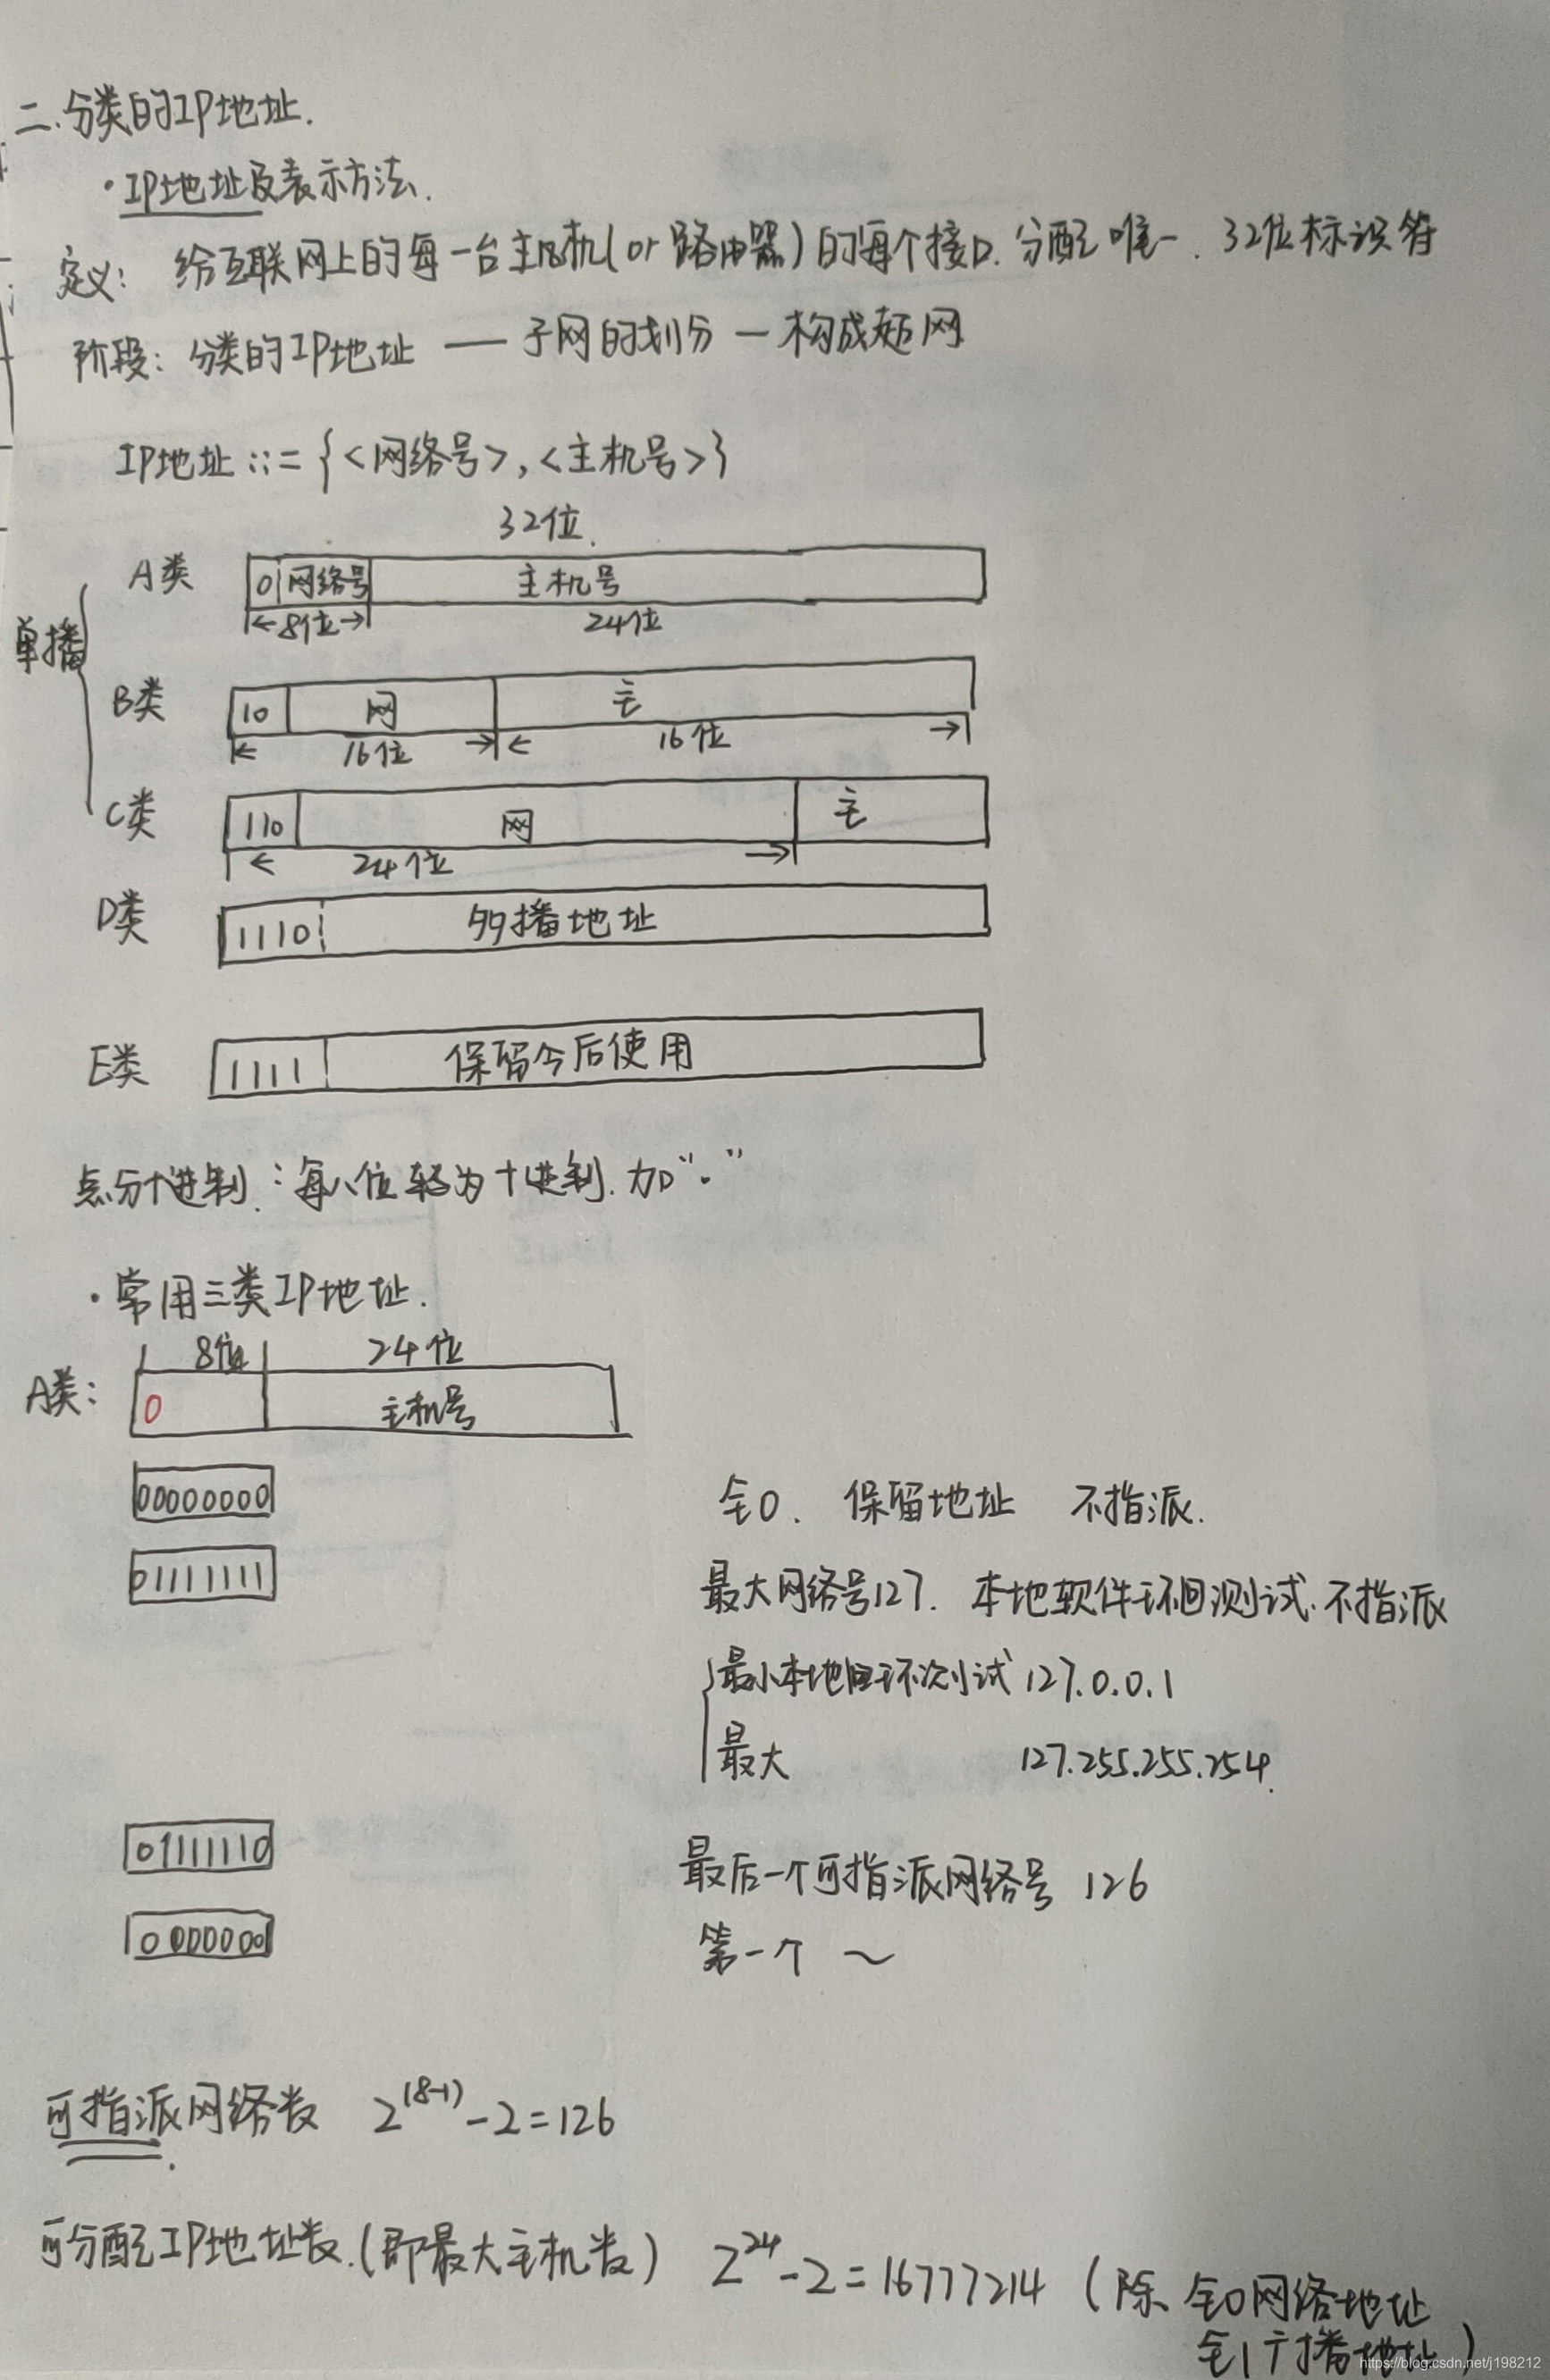 二.分类的IP地址.
·IP地址及表示方法.
定义: 给互联网上的每一台主机(or 路由器)的每个接口.分配唯一.32位标识符
阶段: 分类的IP地址 — 子网的划分 — 构成超网
IP地址 ::= {<网络号>,<主机号>}
32位.
单播
A类 0 网络号 主机号
8位 24位
B类 10 网 主
16位 16位
C类 110 网 主
24位
D类 1110 多播地址
E类 1111 保留今后使用
点分十进制.: 每八位转为十进制.加“.”
·常用三类IP地址.
8位 24位
A类: 0 主机号
00000000 全0. 保留地址 不指派.
01111111 最大网络号127. 本地软件环回测试.不指派
最小本地回环测试 127.0.0.1
最大 127.255.255.254.
01111110 最后一个可指派网络号 126
第一个 ~
可指派网络数 2^(8-1)-2=126
可分配IP地址数.(即最大主机数) 2^24-2=16777214 (除 全0网络地址
全1广播地址)
https://blog.csdn.net/j198212